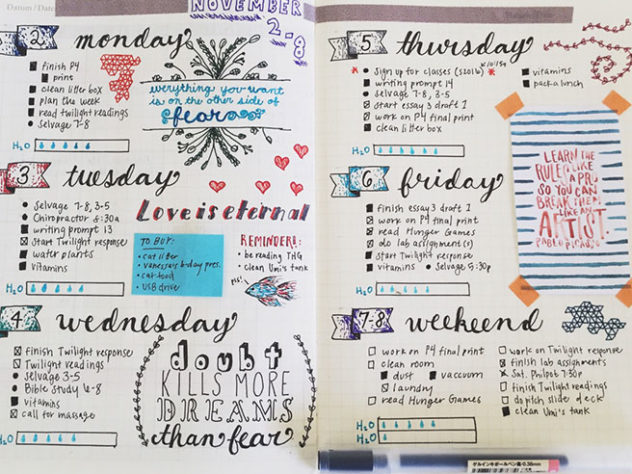 Datum / Date
NOVEMBER
2-8
2 monday
finish P4
print
clean litter box
plan the week
read twilight readings
selvage 7-8
H₂O
everything you want
is on the other side of
fear
3 tuesday
Selvage 7-8, 3-5
Chiropractor 8:30a
writing prompt 13
Start Twilight response
water plants
vitamins
H₂O
Love is eternal
TO BUY:
cat litter
vanessa's b-day pres.
cat food
USB drive
REMINDER!:
be reading THG
clean Umi's tank
pls!
4 wednesday
finish Twilight response
Twilight readings
Selvage 3-5
Bible Study 6-8
vitamins
call for massage
H₂O
doubt
KILLS MORE
DREAMS
than fear
5 thursday
sign up for classes (S2016)
writing prompt 14
Selvage 7-8, 3-5
start essay 3 draft 1
work on P4 final print
clean litter box
vitamins
pack a lunch
H₂O
LEARN THE
RULES LIKE
A PRO
SO YOU CAN
BREAK THEM
LIKE AN
ARTIST.
PABLO PICASSO
6 friday
finish essay 3 draft 1
work on P4 final print
read Hunger Games
do lab assignment(s)
start Twilight response
vitamins
Selvage 5:30p
H₂O
7-8 weekend
work on P4 final print
clean room
dust
vacuum
laundry
read Hunger Games
work on Twilight response
finish lab assignments
Sat. Philpot 7:30p
finish Twilight readings
do pitch slide deck
clean Umi's tank
H₂O
ゲルインキボールペン 0.38mm